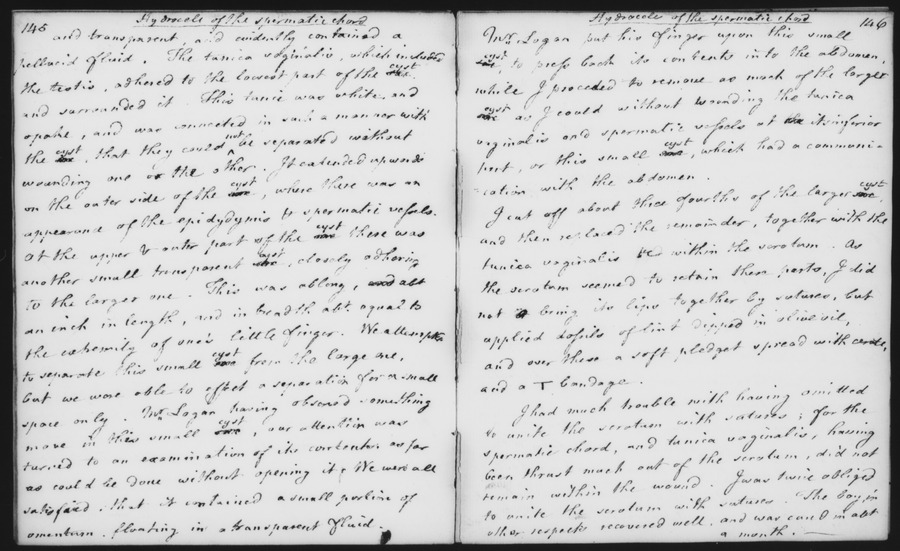 145
Hydrocele of the spermatic chord
and transparent, and evidently contained a
pellucid fluid. The tunica vaginalis, which included
the testis, adhered to the lowest part of the cyst
and surrounded it. This tunic was white and
opake, and was connected in such a manner with
the cyst, that they could not be separated without
wounding one or the other. It extended upwards
on the outer side of the cyst, where there was an
appearance of the epidydymis & spermatic vessels.
At the upper & outer part of the cyst there was
another small transparent cyst, closely adhering
to the larger one. This was oblong, abt
an inch in length, and in breadth abt equal to
the extremity of one's little finger. We attempted
to separate this small cyst from the large one,
but we were able to effect a separation for a small
space only. Mr. Logan having observed something
move in this small cyst, our attention was
turned to an examination of its contents as far
as could be done without opening it. We were all
satisfied, that it contained a small portion of
omentum, floating in a transparent fluid.
146
Hydrocele of the spermatic chord
Mr. Logan put his finger upon this small
cyst, to press back its contents into the abdomen,
while I proceeded to remove as much of the larger
cyst as I could without wounding the tunica
vaginalis and spermatic vessels at its inferior
part, or this small cyst, which had a communi-
cation with the abdomen.
I cut off about three fourths of the larger cyst,
and then replaced the remainder, together with the
tunica vaginalis &c within the scrotum. As
the scrotum seemed to retain them parts, I did
not bring its lips together by sutures, but
applied dossils of lint dipped in olive oil,
and over these a soft pledget spread with cerate,
and a T bandage.
I had much trouble with having omitted
to unite the scrotum with sutures; for the
spermatic chord, and tunica vaginalis, having
been thrust much out of the scrotum, did not
remain within the wound. I was twice obliged
to unite the scrotum with sutures. The boy in
other respects recovered well, and was cured in abt
a month.